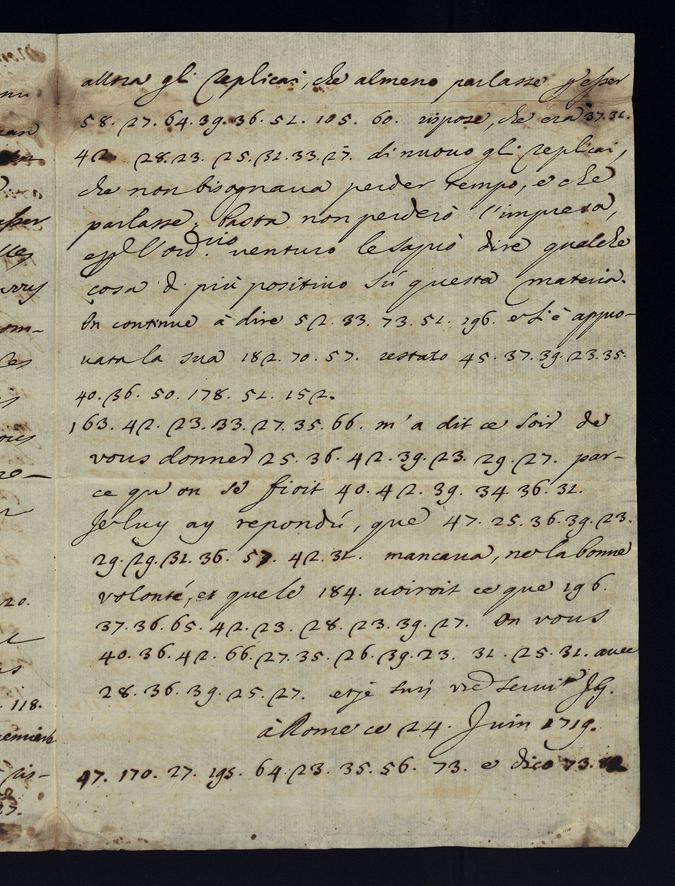 allora gli replicai, che almeno parlasse p esser
58. 27. 64. 39. 36. 51. 105. 60. rispose, che era 37. 31.
42. 28. 23. 25. 31. 33. 27. di nuovo gli replicai,
che non bisognava perder tempo, e che
parlasse; basta non perderò l'impresa,
e l'ord.rio venturo le saprò dire qualche
cosa di più positivo sù questa materia.
On continue à dire 52. 33. 73. 51. 196. e si è appro-
vata la sua 182. 70. 57. restato 45. 37. 39. 23. 35.
40. 36. 50. 178. 51. 152.
163. 42. 23. 33. 27. 35. 66. m'a dit ce soir de
vous donner 25. 36. 42. 39. 23. 29. 27. par-
ce qu'on se fioit 40. 42. 39. 34. 36. 31.
Je luy ay repondú, que 47. 25. 36. 39. 23.
29. 29. 31. 36. 57. 42. 31. mancava, ne la bonne
volonté, et que le 184. voiroit ce que 196.
37. 36. 65. 42. 23. 28. 23. 39. 27. On vous
40. 36. 42. 66. 27. 35. 26. 39. 23. 31. 25. 31. avec
28. 36. 39. 25. 27. et je suis vre servitr
à Rome ce 24. Juin 1719.
47. 170. 27. 195. 64. 23. 35. 56. 73. e dico 73.
nu
om-
es
20.
118.
cis-